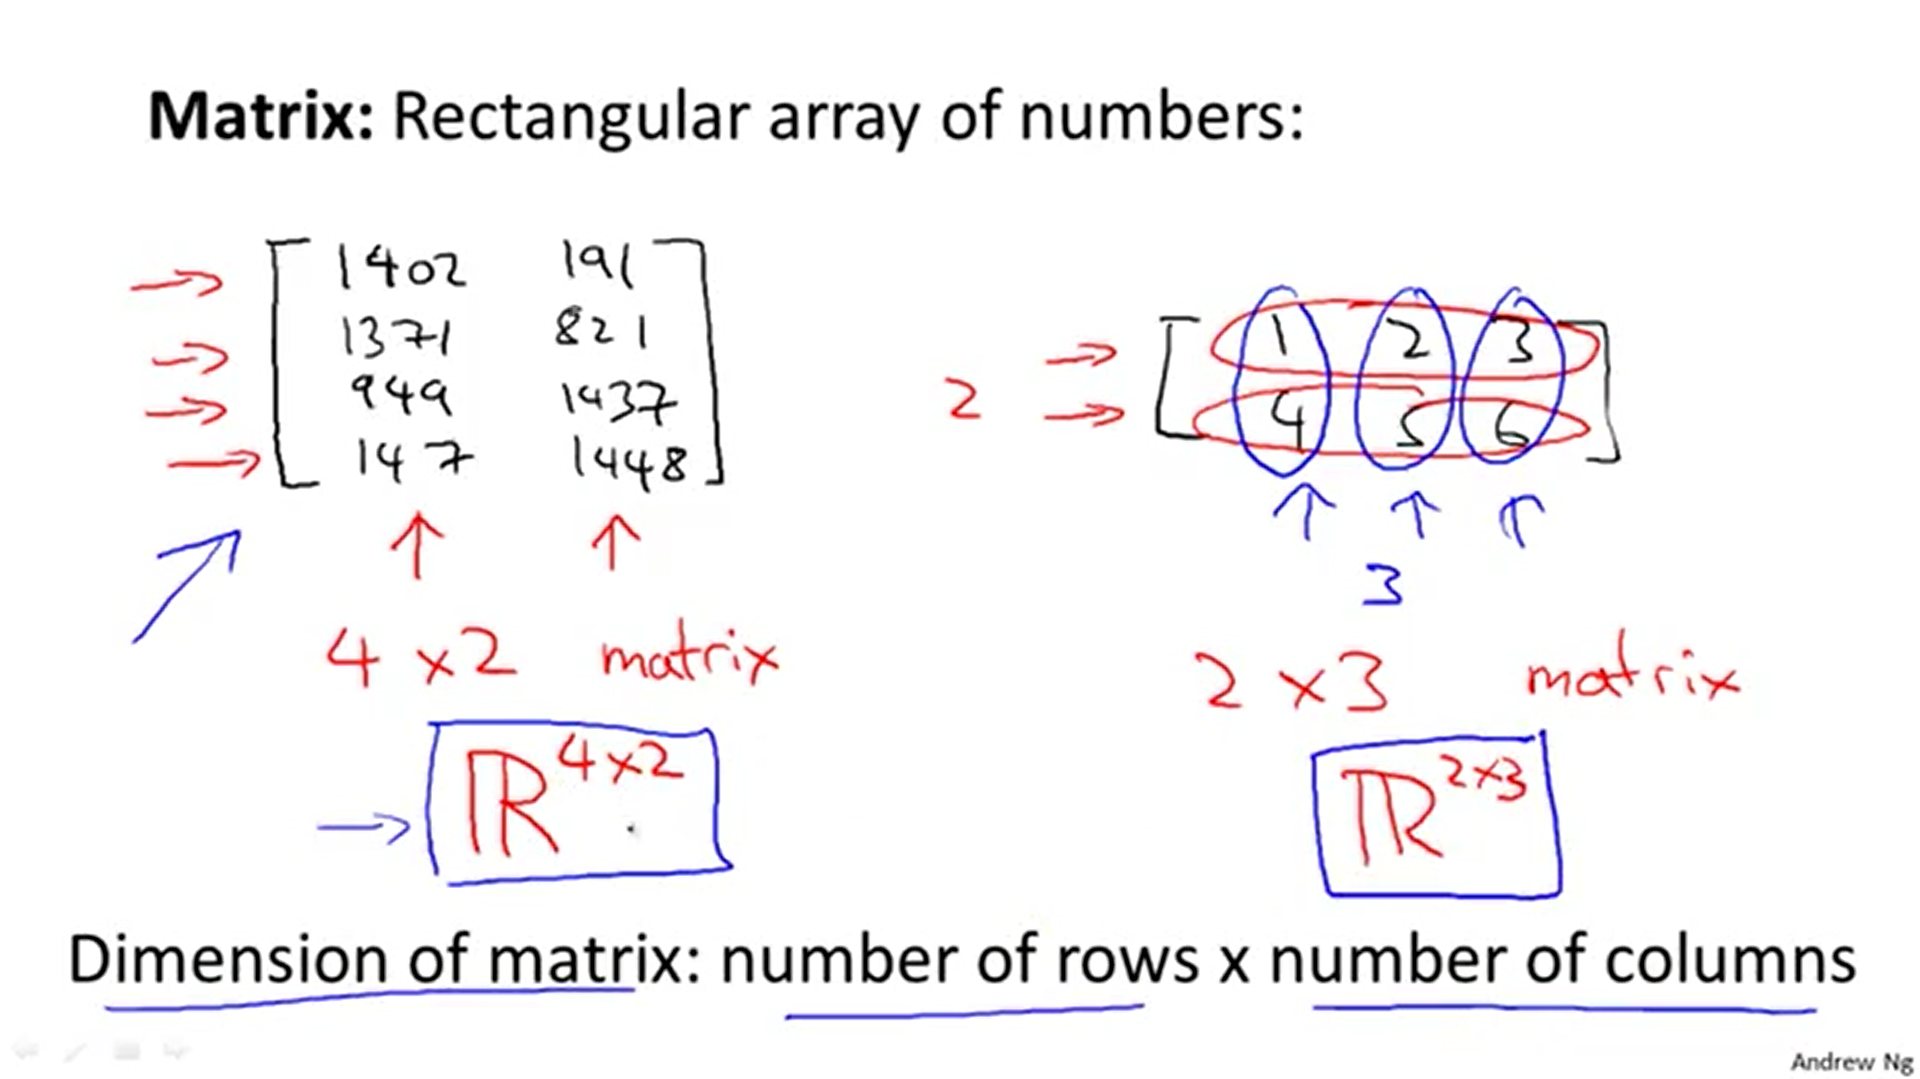 Matrix: Rectangular array of numbers:
1402 191
1371 821
949 1437
147 1448
4 x2 matrix
ℝ^4x2
2
1 2 3
4 5 6
3
2 x3 matrix
ℝ^2x3
Dimension of matrix: number of rows x number of columns
Andrew Ng